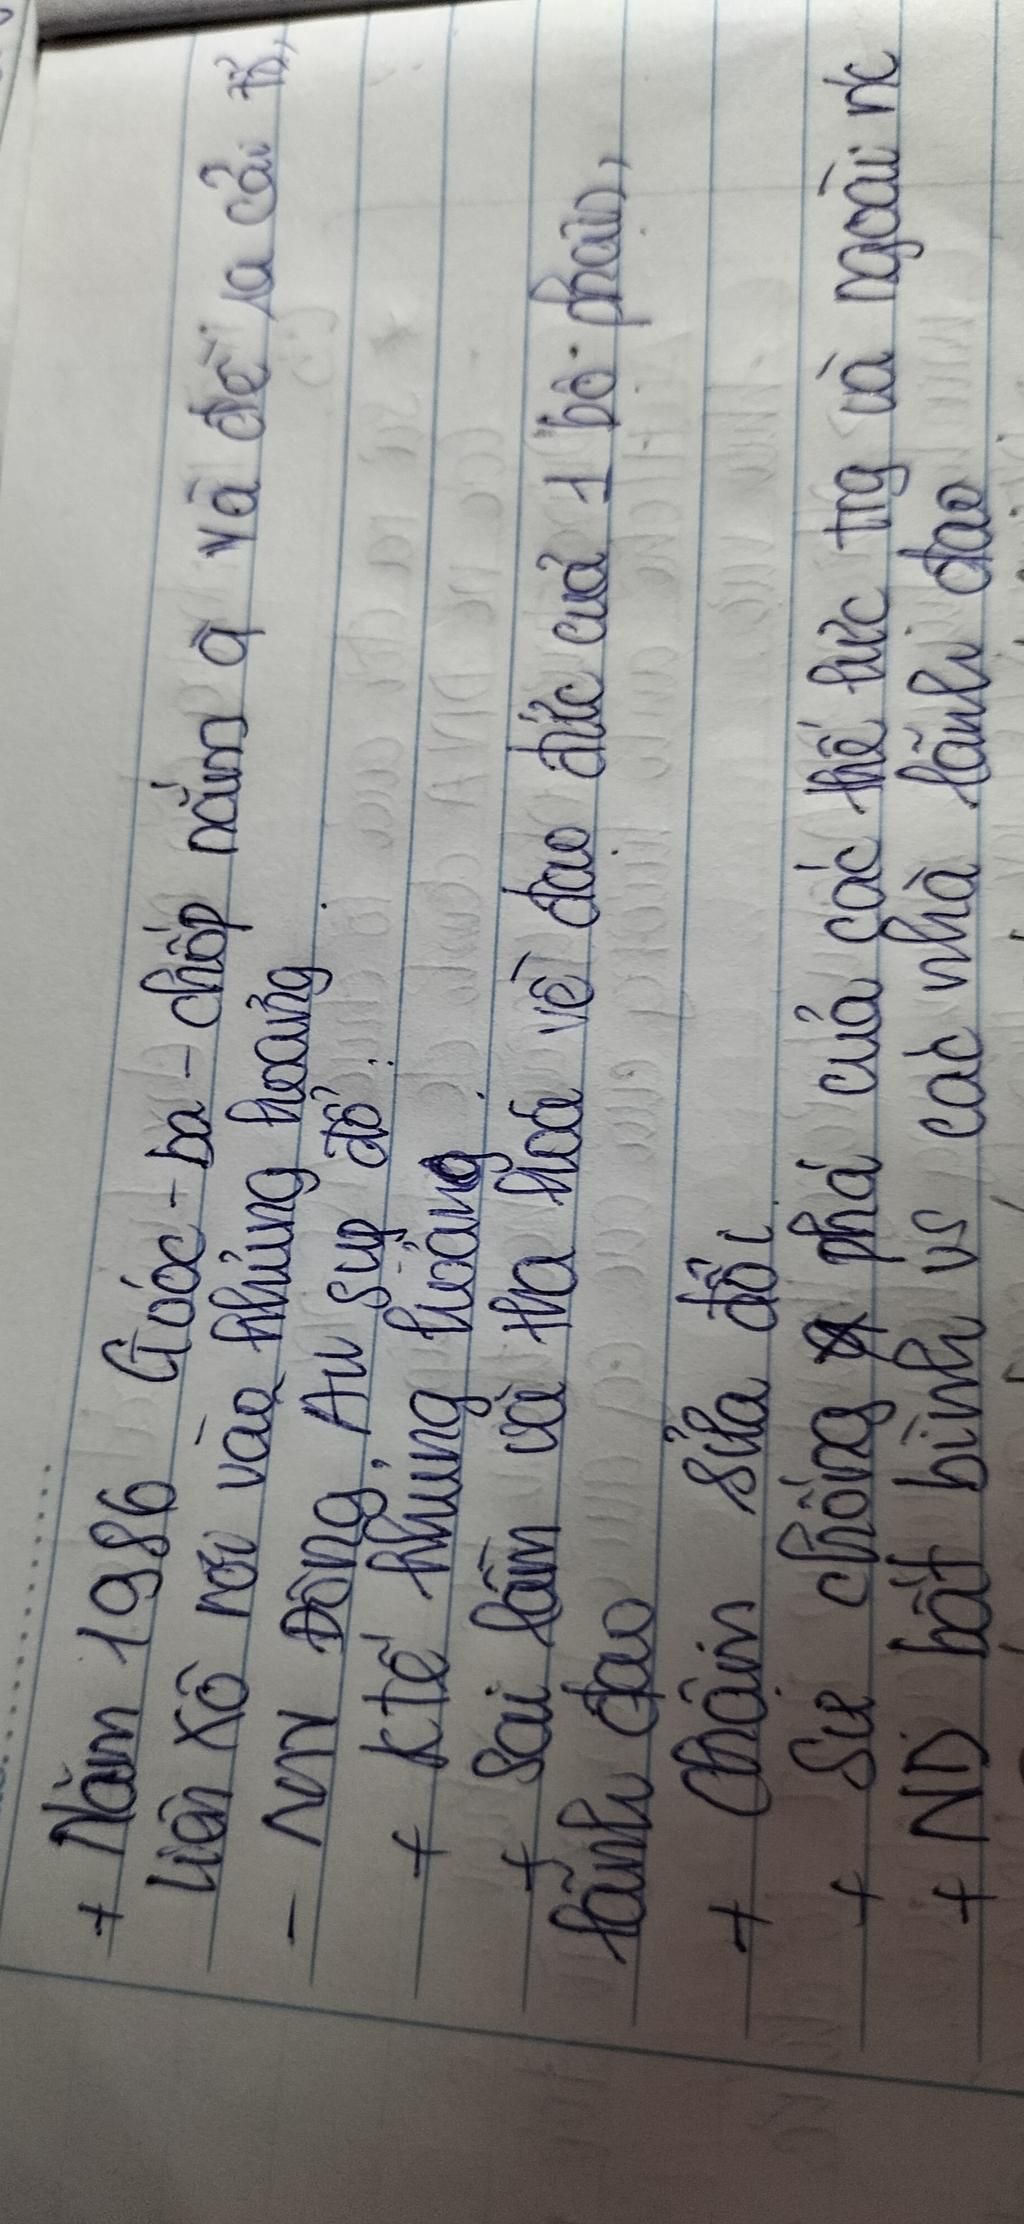 + Năm 1986 Góoc-ba-chốp nắm q và đề ra cải tổ,
Liên Xô rơi vào khủng hoảng
- NN Đông Âu sụp đổ:
+ KTế khủng hoảng
+ Sai lầm và tha hoá về đạo đức của 1 bộ phận,
lãnh đạo
+ Chậm sửa đổi
+ Sự chống phá của các thế lực trg và ngoài nc
+ ND bất bình vs các nhà lãnh đạo